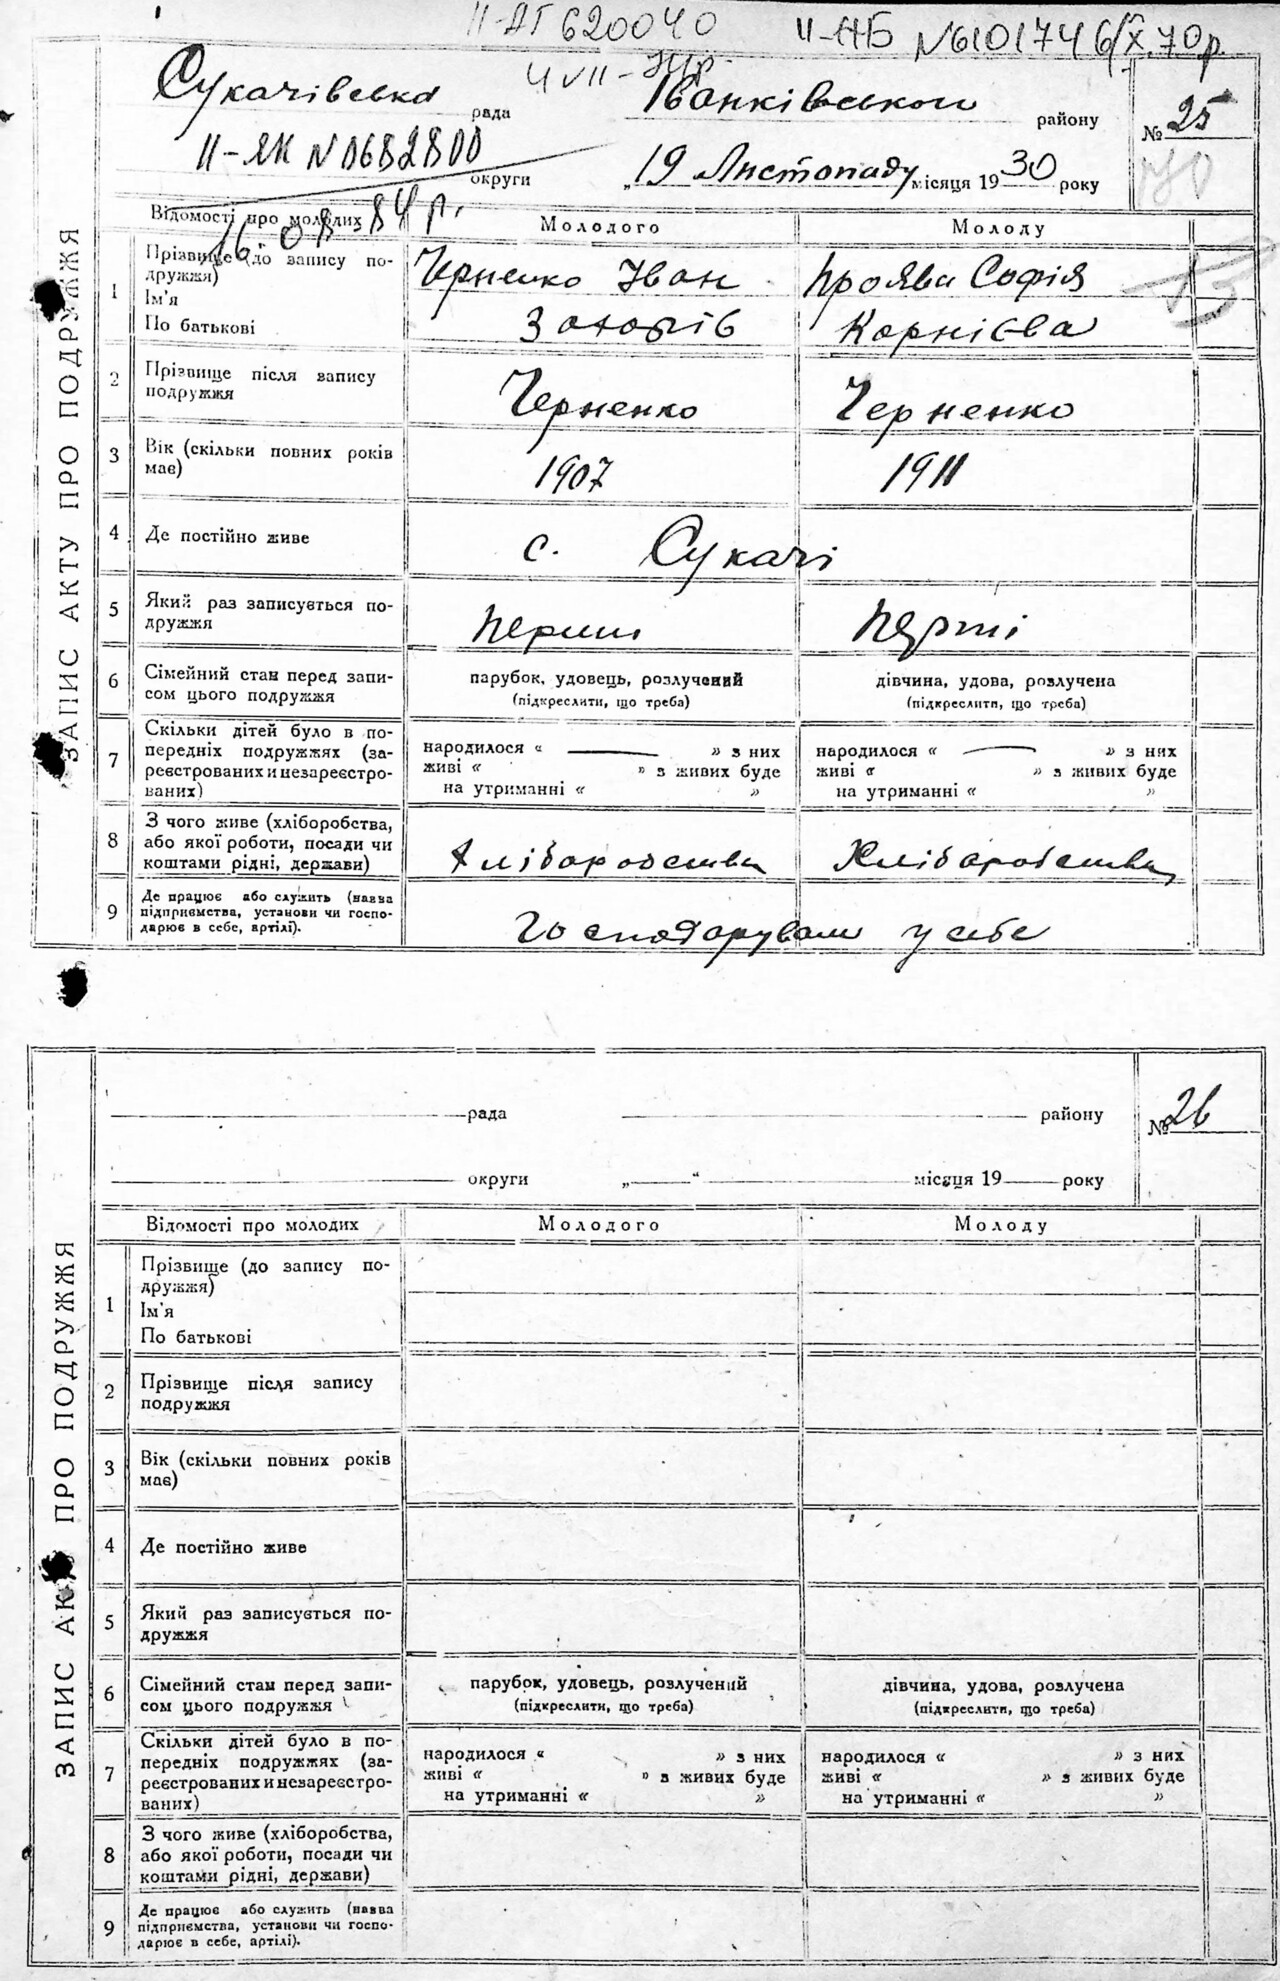 ІІ-АГ 620040
ІІ-АБ №6101746/X.70р.
4 VII-
Сукачівська рада
Іванківського району
№ 25
ІІ-ЯК №0682800
округи
„19 Листопаду місяця 1930 року
170
16.08.84 р.
ЗАПИС АКТУ ПРО ПОДРУЖЖЯ
Відомості про молодих
Молодого
Молоду
1
Прізвище (до запису по-
дружжя)
Ім'я
По батькові
Черненко Іван
Захарів
Проява Софія
Корнієва
13
2
Прізвище після запису
подружжя
Черненко
Черненко
3
Вік (скільки повних років
має)
1907
1911
4
Де постійно живе
с. Сукачі
5
Який раз записується по-
дружжя
перши
перші
6
Сімейний стан перед запи-
сом цього подружжя
парубок, удовець, розлучений
(підкреслити, що треба)
дівчина, удова, розлучена
(підкреслити, що треба)
7
Скільки дітей було в по-
передніх подружжях (за-
реєстрованих и незареєстро-
ваних)
народилося « — » з них
живі « » з живих буде
на утриманні « »
народилося « — » з них
живі « » з живих буде
на утриманні « »
8
З чого живе (хліборобства,
або якої роботи, посади чи
коштами рідні, держави)
Хліборобства
Хліборобства
9
Де працює або служить (назва
підприємства, установи чи госпо-
дарює в себе, артілі).
Господарували у себе
рада
району
№ 26
округи
„—“ місяця 19— року
ЗАПИС АКТУ ПРО ПОДРУЖЖЯ
Відомості про молодих
Молодого
Молоду
1
Прізвище (до запису по-
дружжя)
Ім'я
По батькові
2
Прізвище після запису
подружжя
3
Вік (скільки повних років
має)
4
Де постійно живе
5
Який раз записується по-
дружжя
6
Сімейний стан перед запи-
сом цього подружжя
парубок, удовець, розлучений
(підкреслити, що треба)
дівчина, удова, розлучена
(підкреслити, що треба)
7
Скільки дітей було в по-
передніх подружжях (за-
реєстрованих и незареєстро-
ваних)
народилося « » з них
живі « » з живих буде
на утриманні « »
народилося « » з них
живі « » з живих буде
на утриманні « »
8
З чого живе (хліборобства,
або якої роботи, посади чи
коштами рідні, держави)
9
Де працює або служить (назва
підприємства, установи чи госпо-
дарює в себе, артілі).